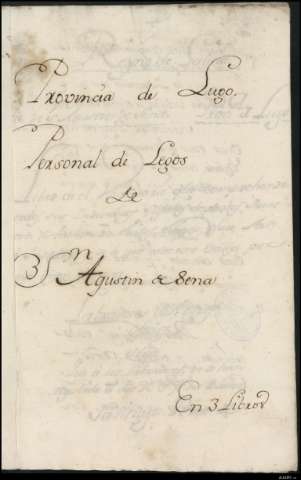 Provincia de Lugo.
Personal de Legos
de
Sn
Agustin de Sena
En 3 Libros